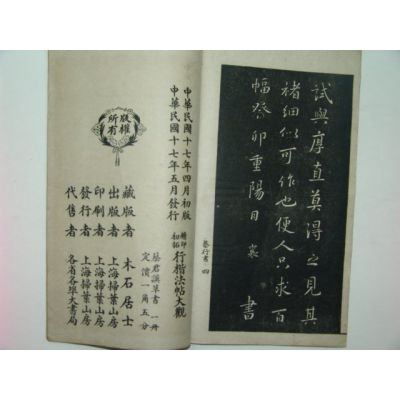 試與厚直莫得之見其
楮細似可作也便人只求百
幅癸卯重陽日 襄 書
蔡行書 四
中華民國十七年四月初版
中華民國十七年五月發行
精印
初拓
行楷法帖大觀
蔡君謨草書 一冊
定價一角五分
藏版者 木石居士
出版者 上海掃葉山房
印刷者 上海掃葉山房
發行者 上海掃葉山房
代售者 各省各埠大書局
版權
所有